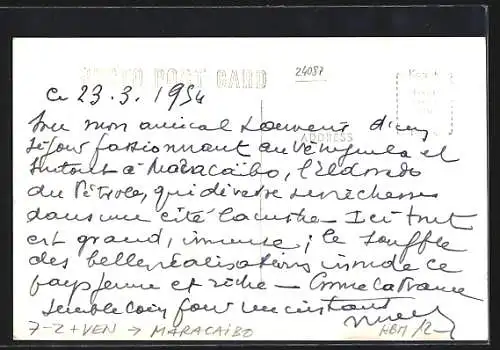 PHOTO POST CARD
24087
Ce 23.3.1954
ADDRESS
mon amical souvenir d'un
séjour passionnant au Vénézuela et
surtout à Maracaïbo, l'Eldorado
du Pétrole, qui déverse ses richesses
dans une cité lacustre - Ici tout
est grand, immense ; le souffle
des belles réalisations inonde ce
pays jeune et riche - Comme la France
semble loin pour un instant
7-Z+VEN → MARACAIBO HBM/2-